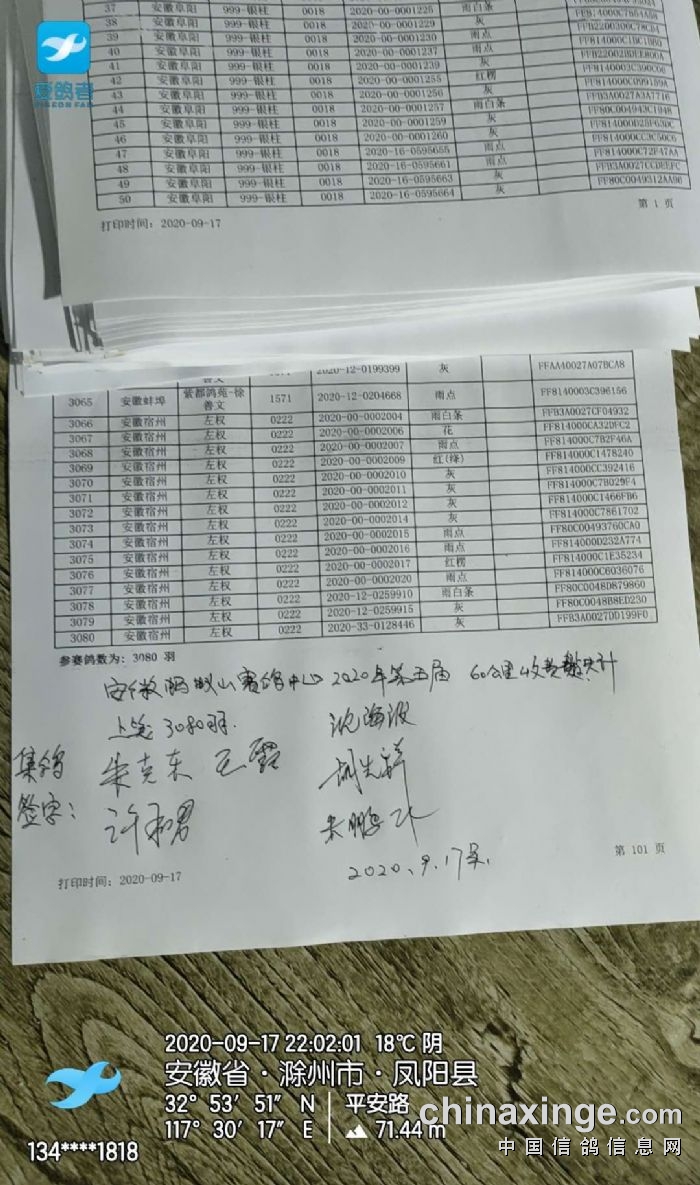 爱鸽者
PIGEON FAN
37 安徽阜阳 999-银柱 0018 2020-00-0001225 雨白条
38 安徽阜阳 999-银柱 0018 2020-00-0001229 灰 FFB2200300C78CB4
39 安徽阜阳 999-银柱 0018 2020-00-0001230 雨点 FF814000C1BC1BB0
40 安徽阜阳 999-银柱 0018 2020-00-0001237 雨点
41 安徽阜阳 999-银柱 0018 2020-00-0001239 灰 FF8140003C390C66
42 安徽阜阳 999-银柱 0018 2020-00-0001255 红楞 FF814000C099159A
43 安徽阜阳 999-银柱 0018 2020-00-0001256 灰 FFB3A0027A3A7716
44 安徽阜阳 999-银柱 0018 2020-00-0001257 雨白条 FF80C004943C194E
45 安徽阜阳 999-银柱 0018 2020-00-0001259 灰 FF814000D2BF63DC
46 安徽阜阳 999-银柱 0018 2020-00-0001260 灰 FF814000CC3C50C6
47 安徽阜阳 999-银柱 0018 2020-16-0595655 雨点 FF814000C72F47AA
48 安徽阜阳 999-银柱 0018 2020-16-0595661 雨点 FFB3A0027CCDEEFC
49 安徽阜阳 999-银柱 0018 2020-16-0595663 灰
50 安徽阜阳 999-银柱 0018 2020-16-0595664 灰 FF80C0049312AA96
打印时间：2020-09-17 第 1 页
善文 2020-12-0199399 灰 FFAA40027A07BCA8
3065 安徽蚌埠 紫都鸽苑-徐善文 1571 2020-12-0204668 雨点 FF8140003C396156
3066 安徽宿州 左权 0222 2020-00-0002004 雨白条 FFB3A0027CF04932
3067 安徽宿州 左权 0222 2020-00-0002006 花 FF814000CA32DFC2
3068 安徽宿州 左权 0222 2020-00-0002007 雨点 FF814000C7B2F46A
3069 安徽宿州 左权 0222 2020-00-0002009 红(绛) FF814000C1478240
3070 安徽宿州 左权 0222 2020-00-0002010 灰 FF814000CC392416
3071 安徽宿州 左权 0222 2020-00-0002011 灰 FF814000C7B029F4
3072 安徽宿州 左权 0222 2020-00-0002012 灰 FF814000C1466FB6
3073 安徽宿州 左权 0222 2020-00-0002014 灰 FF814000C7861702
3074 安徽宿州 左权 0222 2020-00-0002015 雨点 FF80C00493760CA0
3075 安徽宿州 左权 0222 2020-00-0002016 雨点 FF814000D232A774
3076 安徽宿州 左权 0222 2020-00-0002017 红楞 FF814000C1E35234
3077 安徽宿州 左权 0222 2020-00-0002020 雨点 FF814000C6036076
3078 安徽宿州 左权 0222 2020-12-0259910 雨白条 FF80C0048D879860
3079 安徽宿州 左权 0222 2020-12-0259915 灰 FF80C0048B8ED230
3080 安徽宿州 左权 0222 2020-33-0128446 灰 FFB3A0027DD199F0
参赛鸽数为：3080 羽
安徽 山赛鸽中心 2020年第五届 60公里收费 共计
上笼 3080羽. 沈海波
集鸽 朱克东 王露
签字： 许和君
2020、9.17号.
打印时间：2020-09-17 第 101 页
2020-09-17 22:02:01 18℃ 阴
安徽省·滁州市·凤阳县
32° 53' 51" N 平安路
117° 30' 17" E 71.44 m
134****1818
chinaxinge.com
中国信鸽信息网